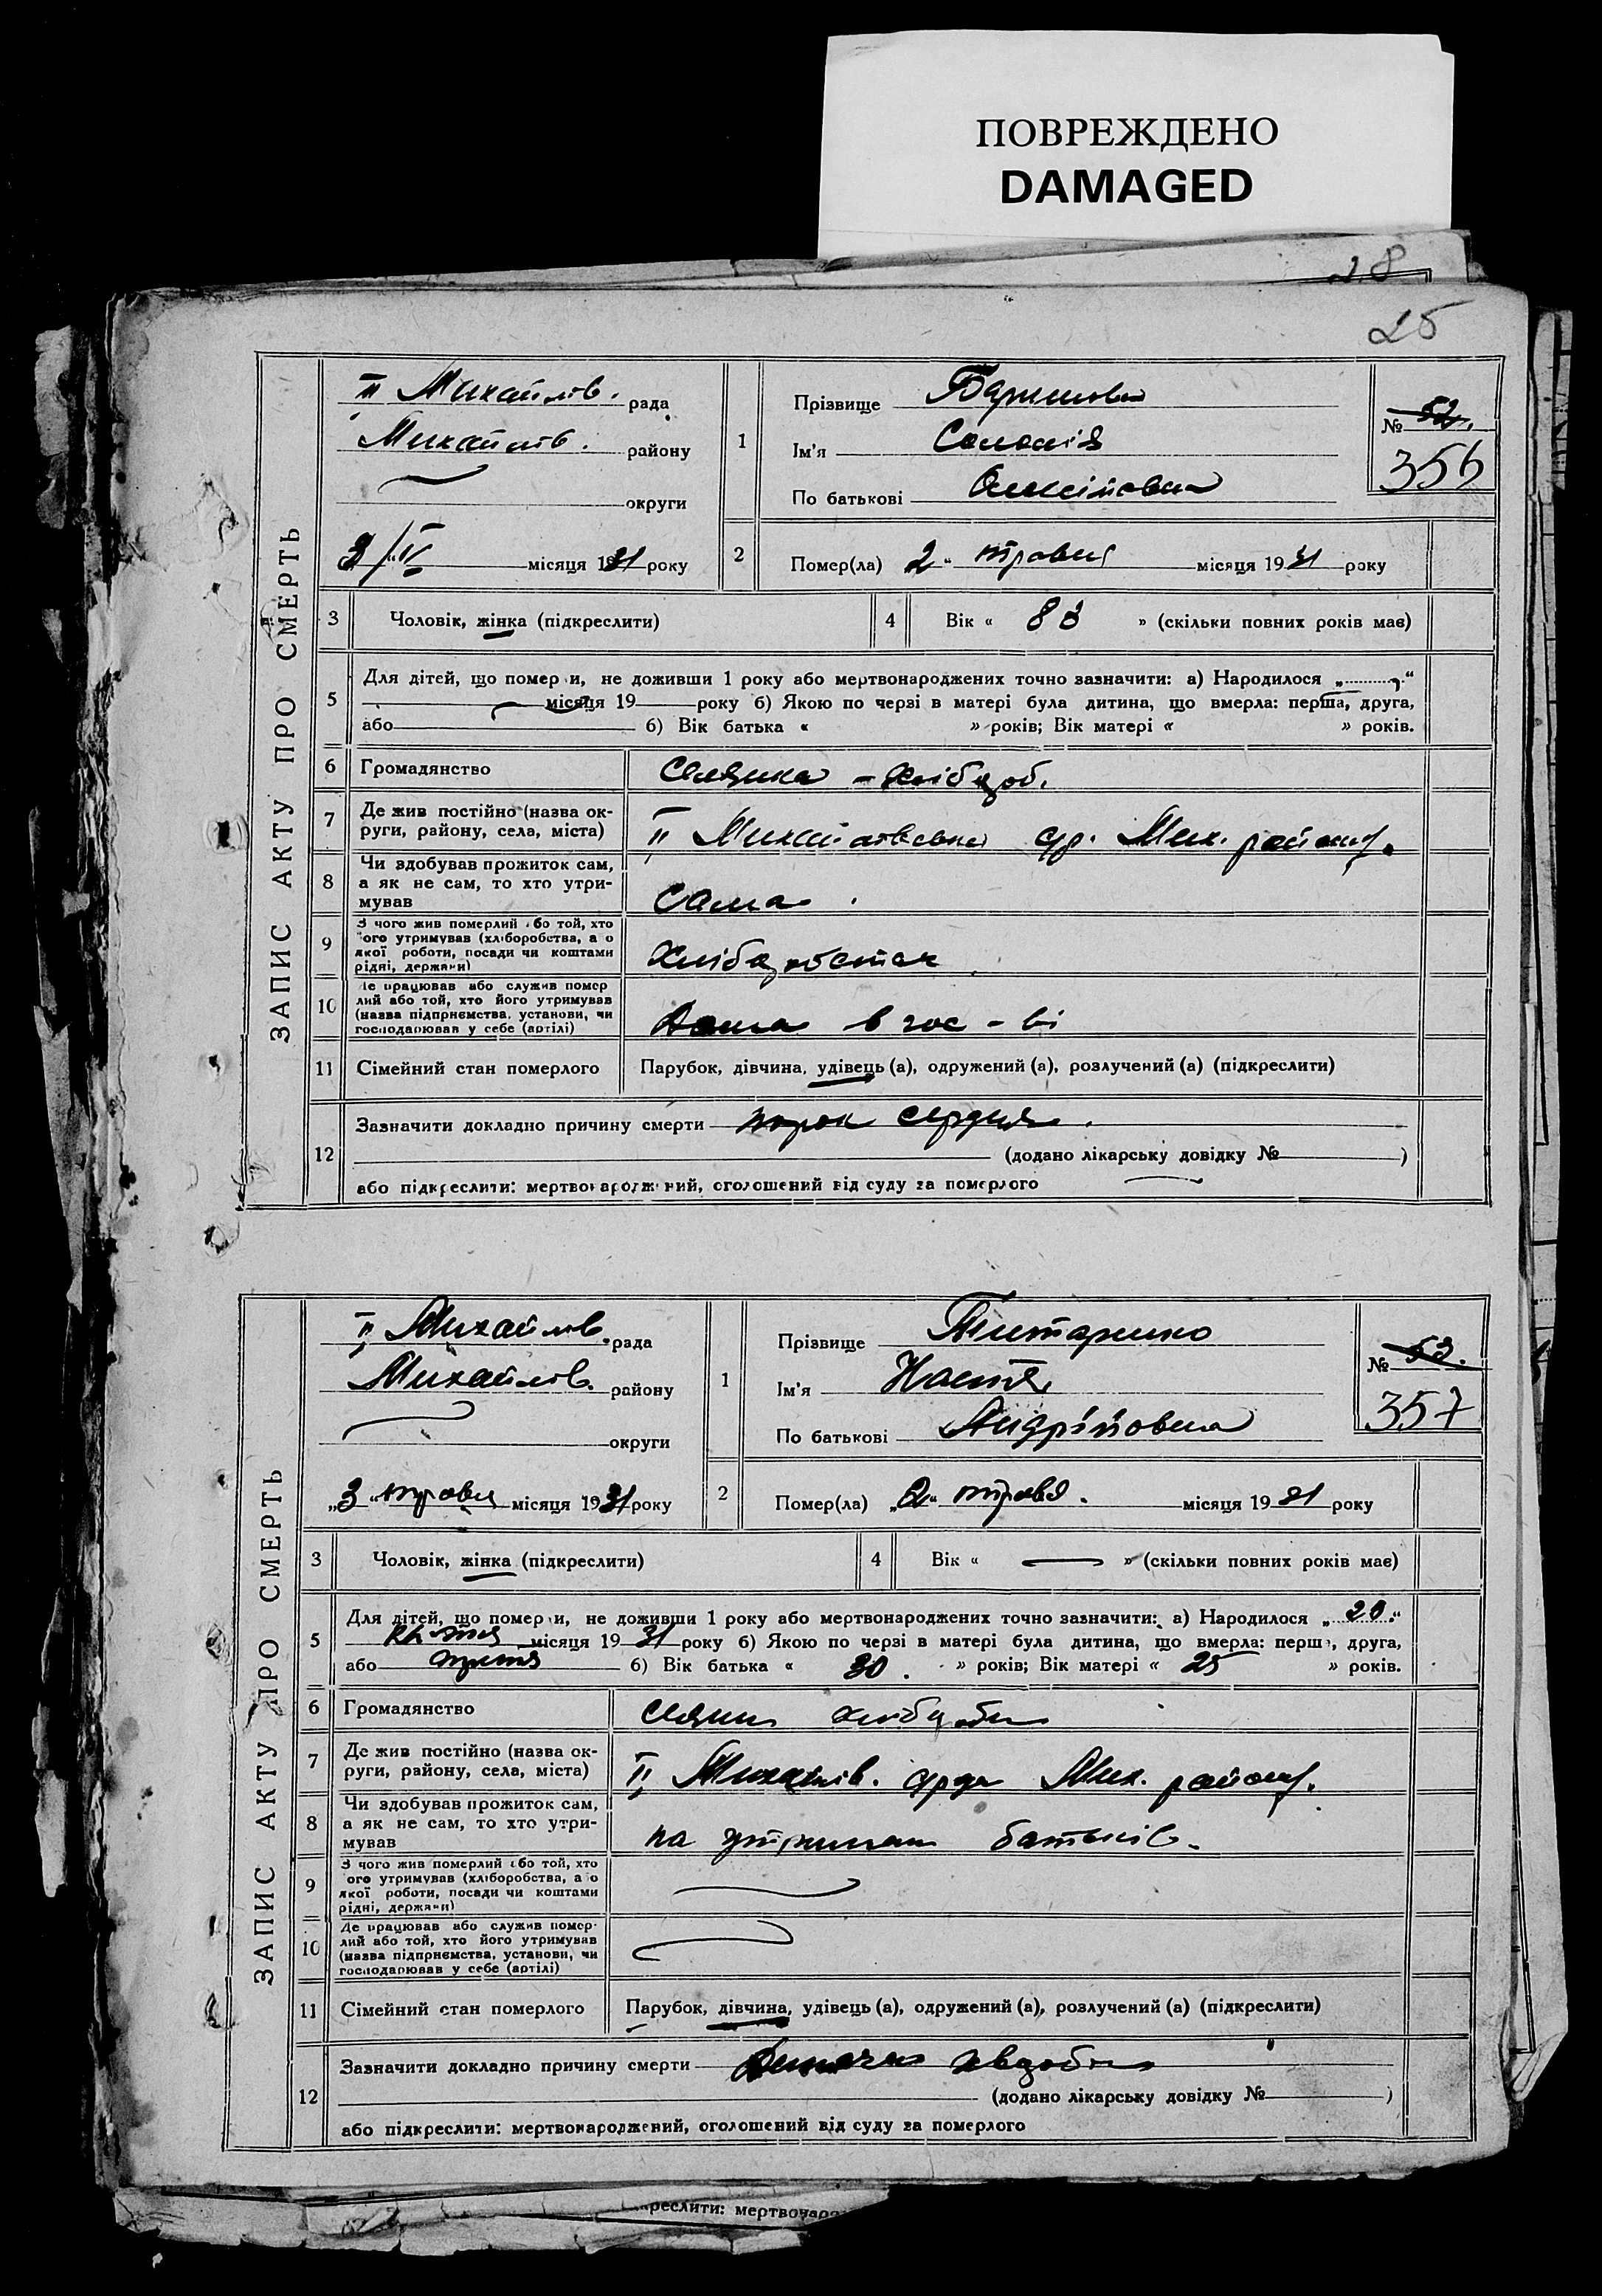 ПОВРЕЖДЕНО
DAMAGED
28
25
ЗАПИС АКТУ ПРО СМЕРТЬ
II Михайлів. рада
Михайлів. району
округи
3/V місяця 1931 року
1
Прізвище
Ім'я Соломія
По батькові Олексіївна
№ 52.
356
2 Помер(ла) „2“ травня місяця 1931 року
3 Чоловік, жінка (підкреслити)
4 Вік « 83 » (скільки повних років має)
5 Для дітей, що помер и, не доживши 1 року або мертвонароджених точно зазначити: а) Народилося „ “
місяця 19 року б) Якою по черзі в матері була дитина, що вмерла: перша, друга,
або б) Вік батька « » років; Вік матері « » років.
6 Громадянство селянка - хлібороб.
7 Де жив постійно (назва ок-
руги, району, села, міста) II Михайлівська с/р. Мих. району.
8 Чи здобував прожиток сам,
а як не сам, то хто утри-
мував сама.
9 З чого жив померлий або той, хто
ого утримував (хліборобства, а о
якої роботи, посади чи коштами
рідні, держави)
10 Де працював або служив помер
лий або той, хто його утримував
(назва підприємства, установи, чи
господарював у себе (артілі) дома в гос-ві
11 Сімейний стан померлого Парубок, дівчина, удівець (а), одружений (а), розлучений (а) (підкреслити)
12 Зазначити докладно причину смерти порок сердця.
(додано лікарську довідку № )
або підкреслити: мертвонароджений, оголошений від суду за померлого
ЗАПИС АКТУ ПРО СМЕРТЬ
II Михайлів. рада
Михайлів. району
округи
„3“ травня місяця 1931 року
1
Прізвище Титаренко
Ім'я Настя
По батькові Андріївна
№ 53.
357
2 Помер(ла) „2“ травя. місяця 1931 року
3 Чоловік, жінка (підкреслити)
4 Вік « — » (скільки повних років має)
5 Для дітей, що помер и, не доживши 1 року або мертвонароджених точно зазначити: а) Народилося „20“
квітня місяця 1931 року б) Якою по черзі в матері була дитина, що вмерла: перша, друга,
або третя б) Вік батька « 30. » років; Вік матері « 25 » років.
6 Громадянство
7 Де жив постійно (назва ок-
руги, району, села, міста) II Михайлів. с/рада Мих. району.
8 Чи здобував прожиток сам,
а як не сам, то хто утри-
мував на утриман батьків.
9 З чого жив померлий або той, хто
ого утримував (хліборобства, а о
якої роботи, посади чи коштами
рідні, держави)
10 Де працював або служив помер-
лий або той, хто його утримував
(назва підприємства, установи, чи
господарював у себе (артілі)
11 Сімейний стан померлого Парубок, дівчина, удівець (а), одружений (а), розлучений (а) (підкреслити)
12 Зазначити докладно причину смерти Дитяча хвороба
(додано лікарську довідку № )
або підкреслити: мертвонароджений, оголошений від суду за померлого
реслити: мертвонаро